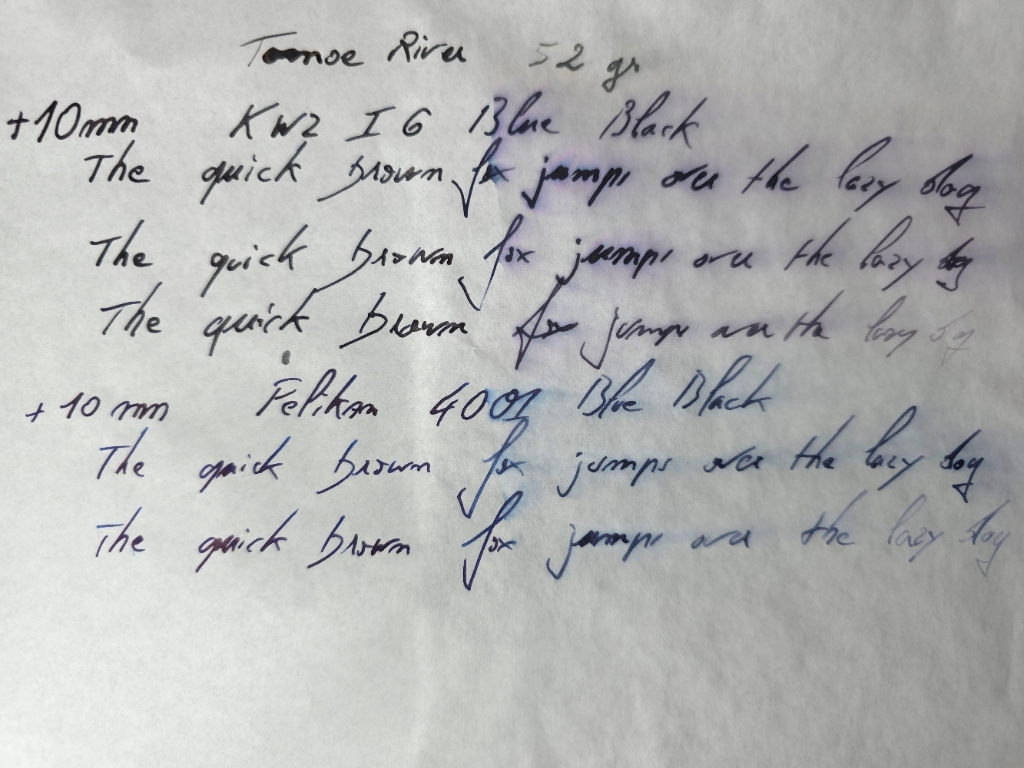 Tomoe River 52 gr
+10mm KWZ IG Blue Black
The quick brown fox jumps over the lazy dog
The quick brown fox jumps over the lazy dog
The quick brown fox jumps over the lazy dog
+10 mm Pelikan 4001 Blue Black
The quick brown fox jumps over the lazy dog
The quick brown fox jumps over the lazy dog